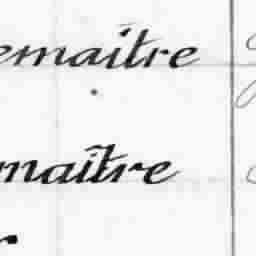 emaître
maître